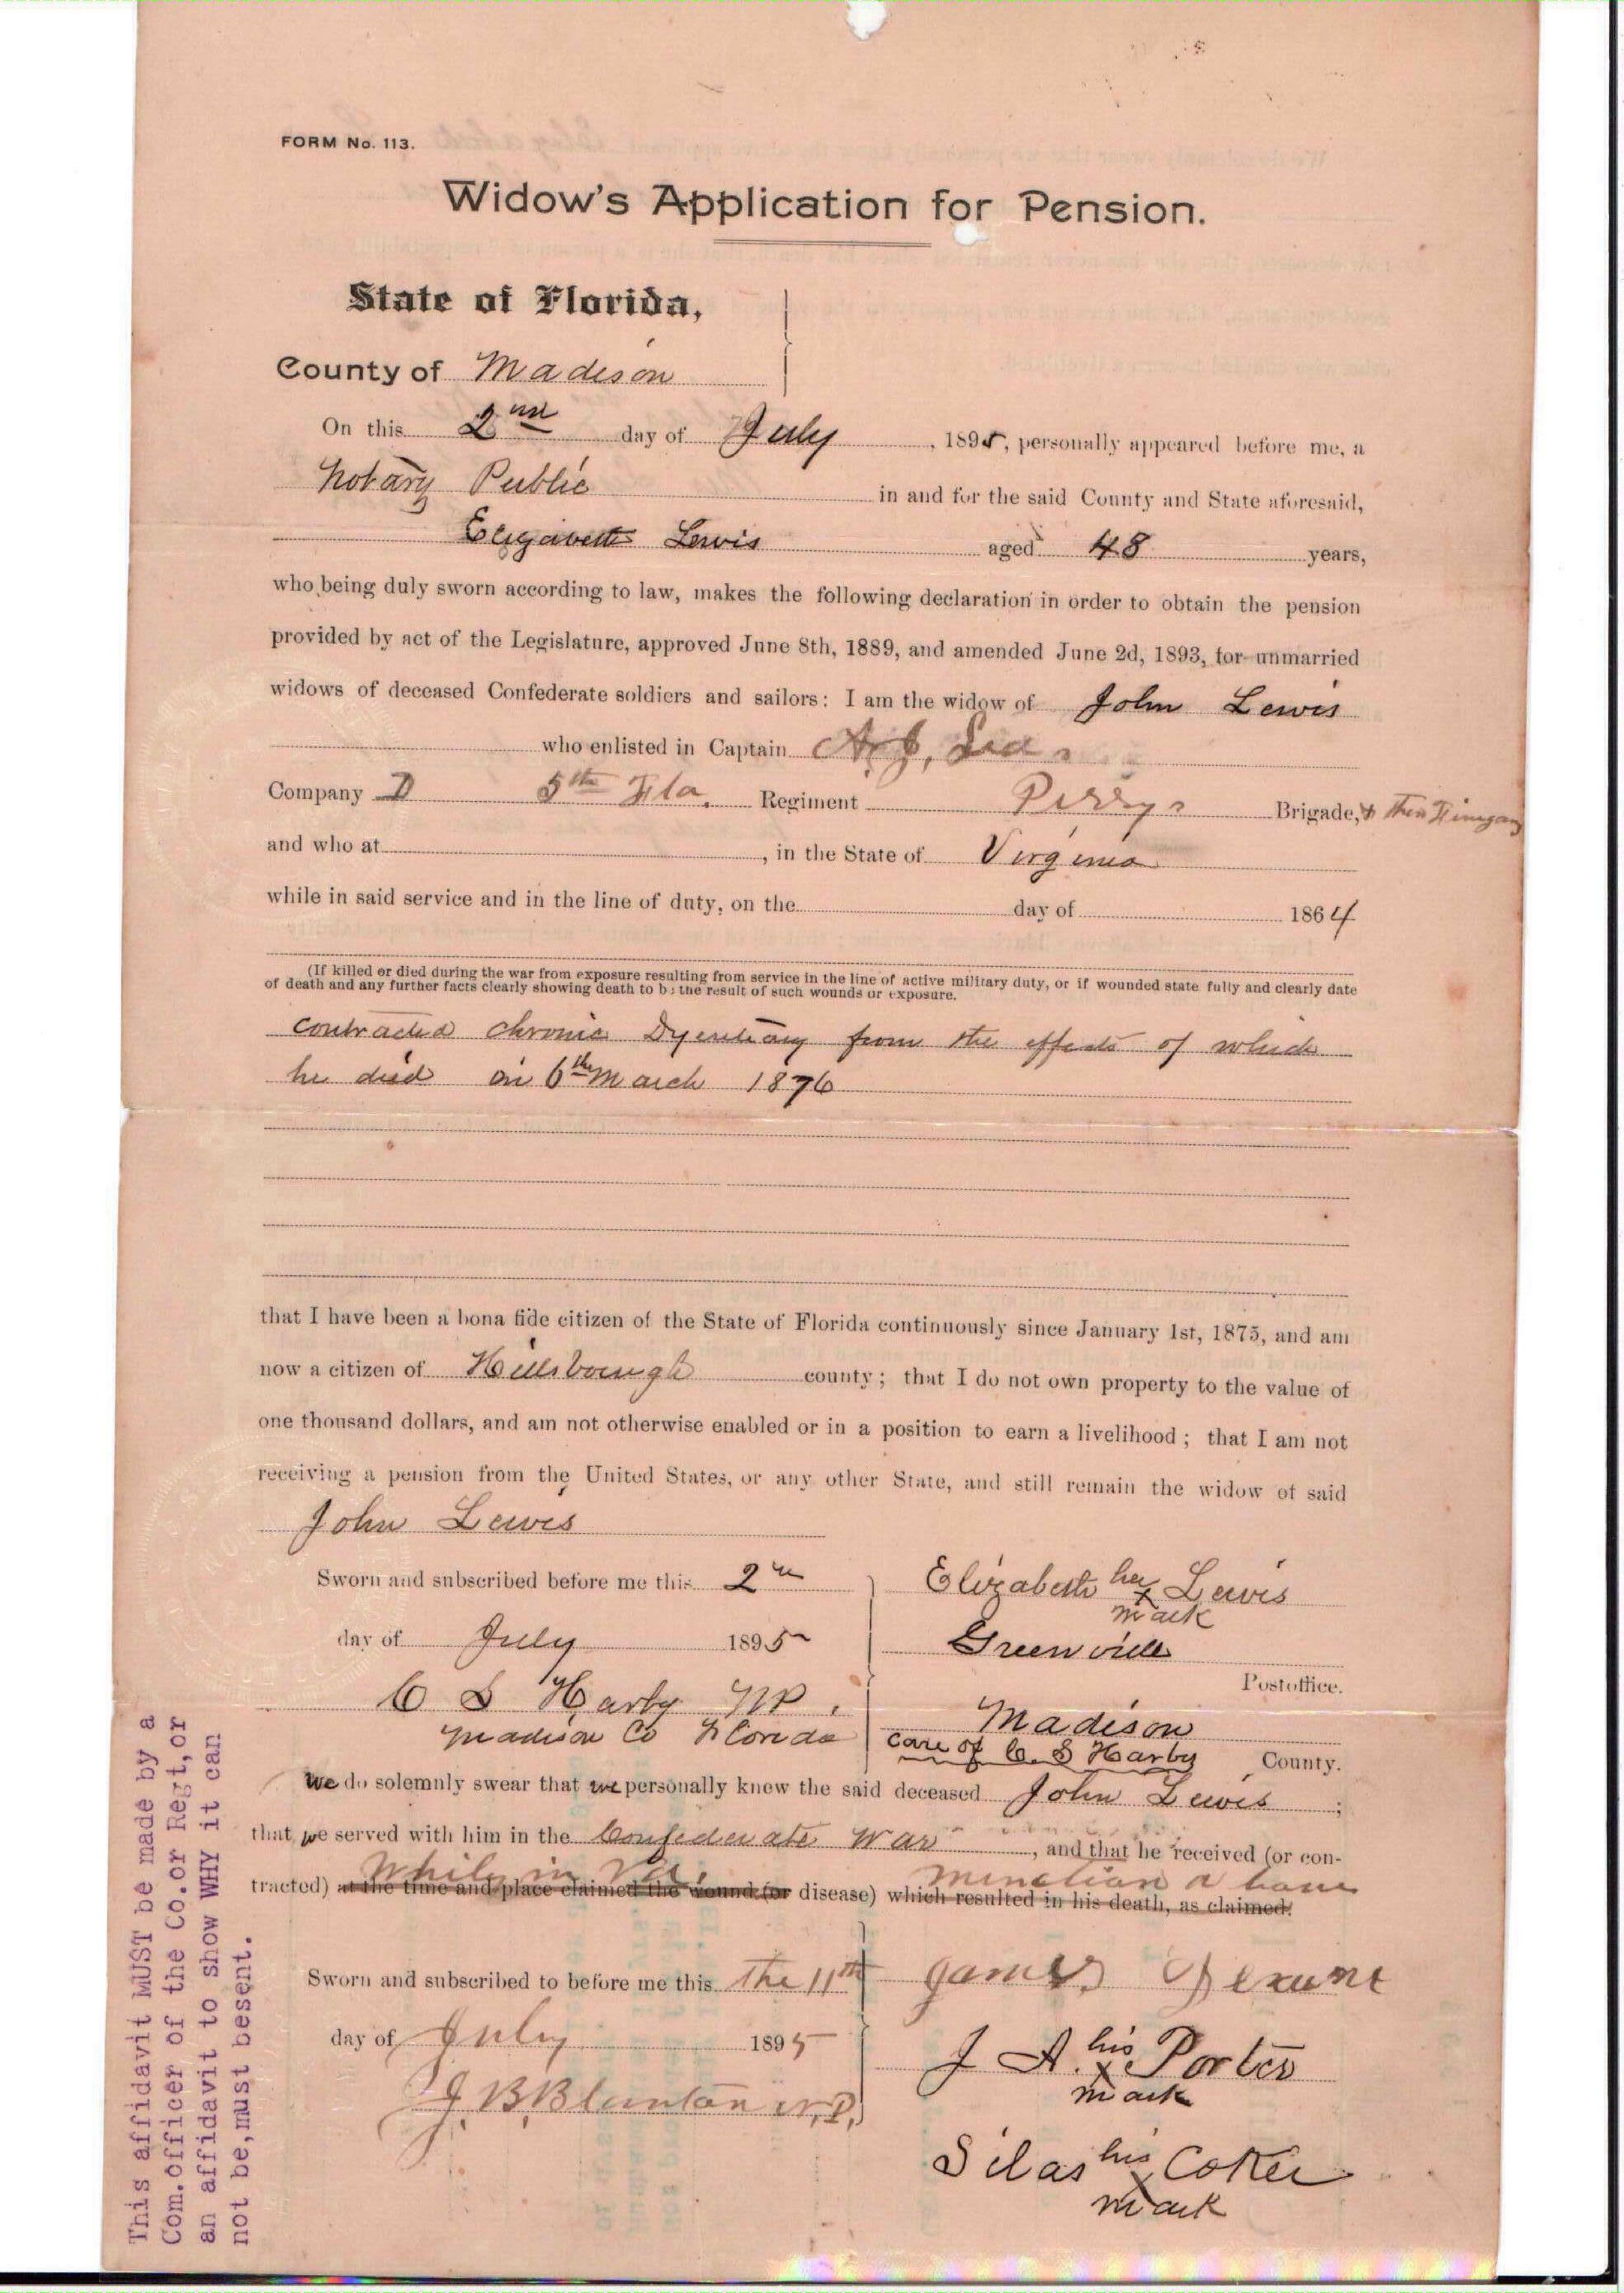 FORM No. 113.
Widow's Application for Pension.
State of Florida,
County of Madison
On this 2nd day of July, 1895, personally appeared before me, a
Notary Public in and for the said County and State aforesaid,
Elizabeth Lewis aged 48 years,
who being duly sworn according to law, makes the following declaration in order to obtain the pension
provided by act of the Legislature, approved June 8th, 1889, and amended June 2d, 1893, for unmarried
widows of deceased Confederate soldiers and sailors: I am the widow of John Lewis
who enlisted in Captain
Company D 5th Fla. Regiment Perrys Brigade, & then Finegans
and who at , in the State of Virginia
while in said service and in the line of duty, on the day of 1864
(If killed or died during the war from exposure resulting from service in the line of active military duty, or if wounded state fully and clearly date
of death and any further facts clearly showing death to be the result of such wounds or exposure.
contracted chronic Dysentary from the effects of which
he died on 6th March 1876
that I have been a bona fide citizen of the State of Florida continuously since January 1st, 1875, and am
now a citizen of Hillsborough county; that I do not own property to the value of
one thousand dollars, and am not otherwise enabled or in a position to earn a livelihood; that I am not
receiving a pension from the United States, or any other State, and still remain the widow of said
John Lewis
Sworn and subscribed before me this 2n
day of July 1895
C S Harby NP.
Madison Co Florida
Elizabeth her x mark Lewis
Greenville
Postoffice.
Madison
care of C. S Harby County.
We do solemnly swear that we personally knew the said deceased John Lewis;
that we served with him in the Confederate War, and that he received (or con-
While in Va.
tracted) at the time and place claimed the wound (or disease) which resulted in his death, as claimed.
Sworn and subscribed to before me this the 11th
day of July 1895
J. B. Blanton N.P.
James
J A. his x mark Porter
Silas his x mark Coker
This affidavit MUST be made by a
Com.officer of the Co.or Regt,or
an affidavit to show WHY it can
not be,must besent.